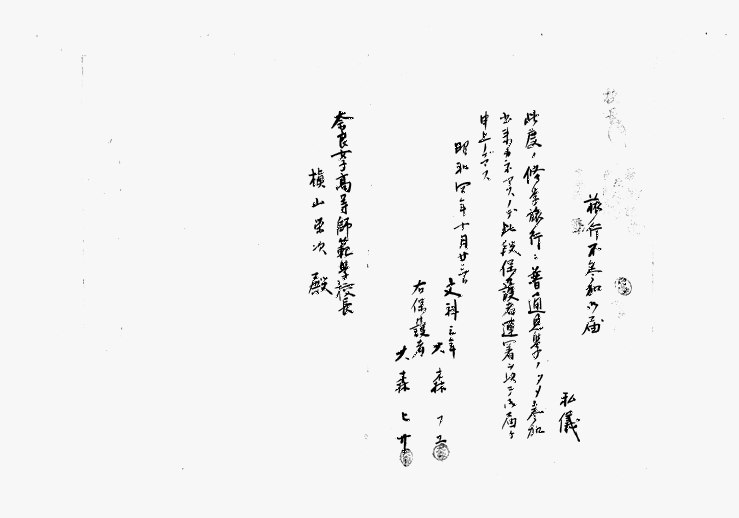 校長
旅行不参加御届
私儀
此度ノ修学旅行ニ普通見学ノタメ参加
出来ネマスノデ此段保護者連署シ以テ御届ケ
申上ゲマス
昭和四年十月廿三日
文科三年
大森フユ
右保護者
大森ヒサ
奈良女子高等師範学校長
槇山栄次 殿